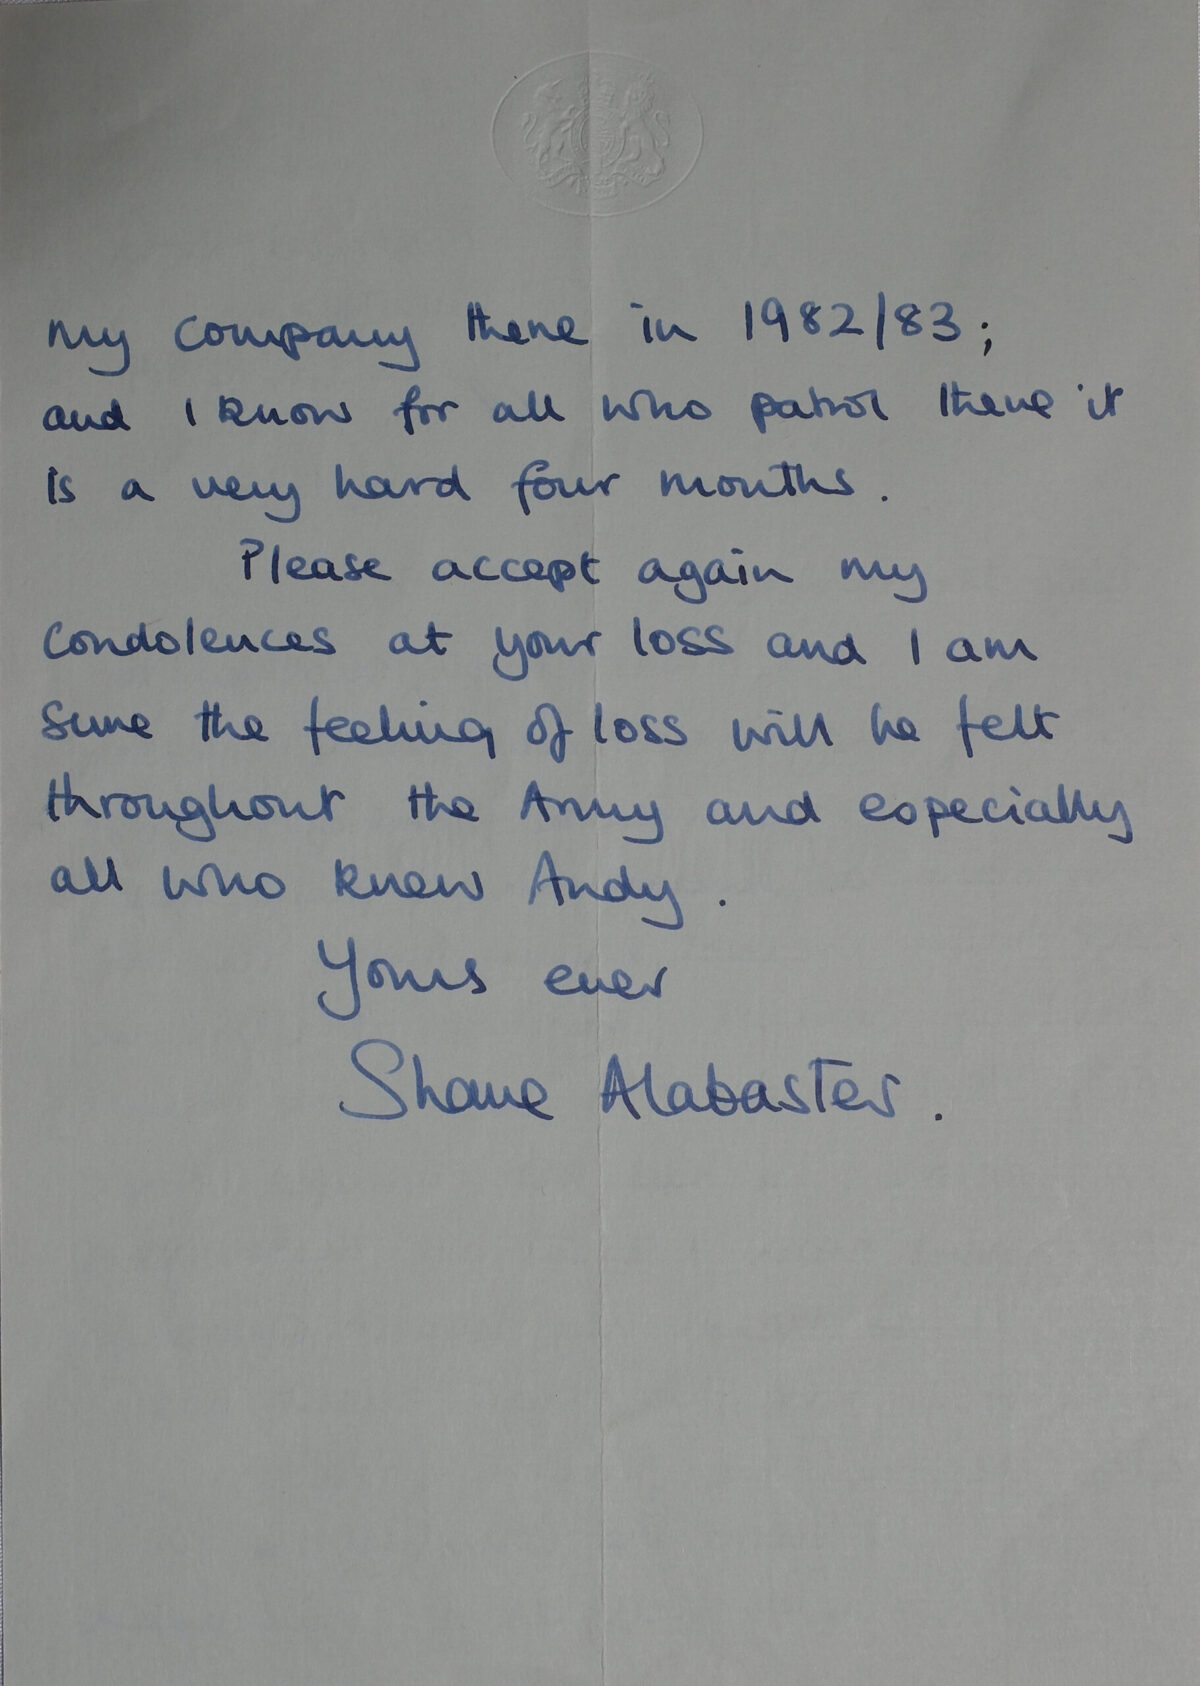 my company there in 1982/83;
and I know for all who patrol there it
is a very hard four months.
Please accept again my
condolences at your loss and I am
sure the feeling of loss will be felt
throughout the Army and especially
all who knew Andy.
Yours ever
Shane Alabaster.